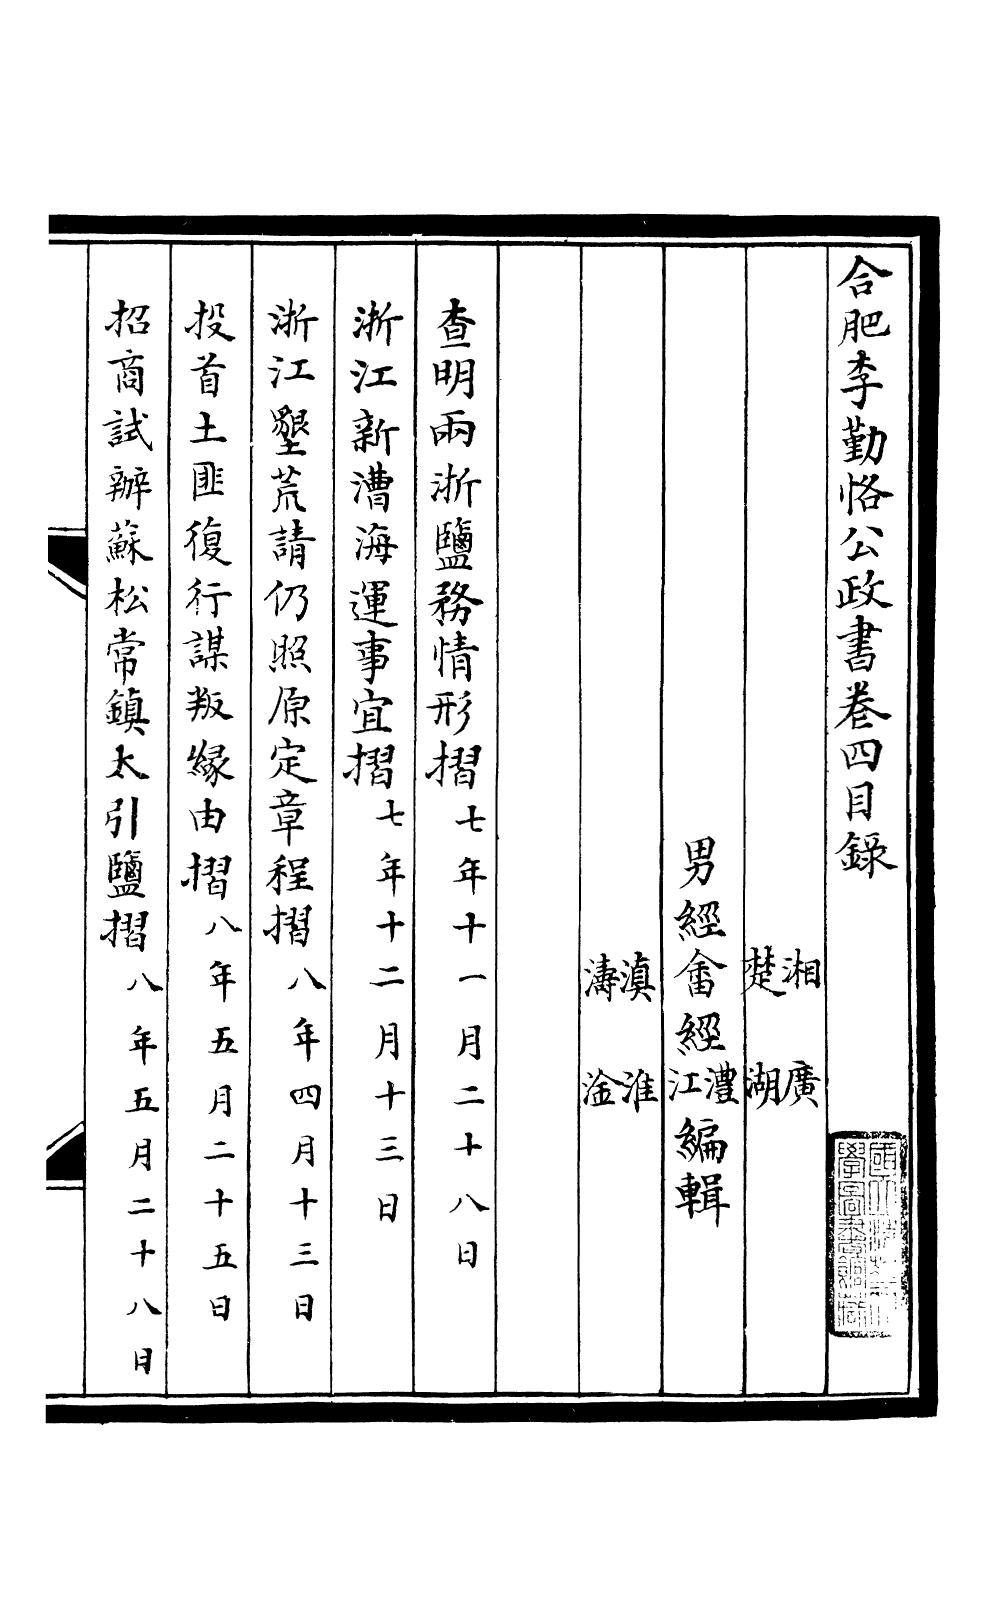 合肥李勤恪公政書卷四目錄
國立清華大
學圖書館藏
湘 廣
楚 湖
男經畬經澧江編輯
滇 淮
濤 淦
查明兩浙鹽務情形摺七年十一月二十八日
浙江新漕海運事宜摺七年十二月十三日
浙江墾荒請仍照原定章程摺八年四月十三日
投首土匪復行謀叛緣由摺八年五月二十五日
招商試辦蘇松常鎮太引鹽摺八年五月二十八日